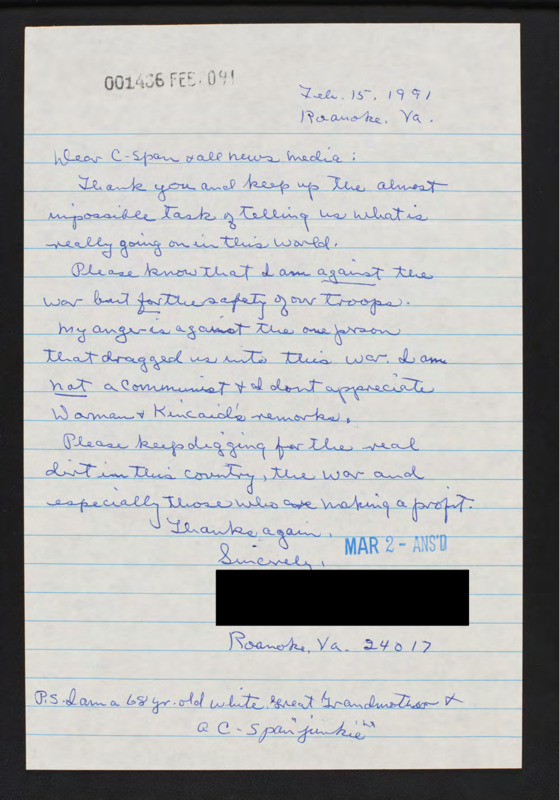 001436 FEB. 091
Feb. 15, 1991
Roanoke, Va.
Dear C-Span & all news media:
Thank you and keep up the almost
impossible task of telling us what is
really going on in this world.
Please know that I am against the
war but for the safety of our troops.
My anger is against the one person
that dragged us into this war. I am
not a communist & I dont appreciate
Worman & Kincaid's remarks.
Please keep digging for the real
dirt in this country, the war and
especially those who are making a profit.
Thanks again.
MAR 2 - ANS'D
Sincerely,
Roanoke, Va. 24017
P.S. I am a 68 yr. old white, Great Grandmother &
a C-Span "junkie"